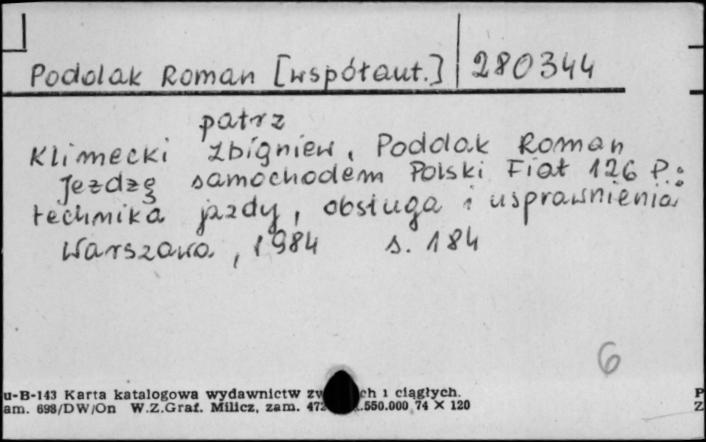 Podolak Roman [współaut.] 280344
patrz
Klimecki Zbigniew, Podolak Roman
Jeżdżę samochodem Polski Fiat 126 P.:
technika jazdy, obsługa i usprawnienia
Warszawa, 1984 s. 184
6
u-B-143 Karta katalogowa wydawnictw ch i ciągłych.
am. 698/DW/On W.Z.Graf. Milicz, zam. 472 .550.000 74 × 120
P
Z